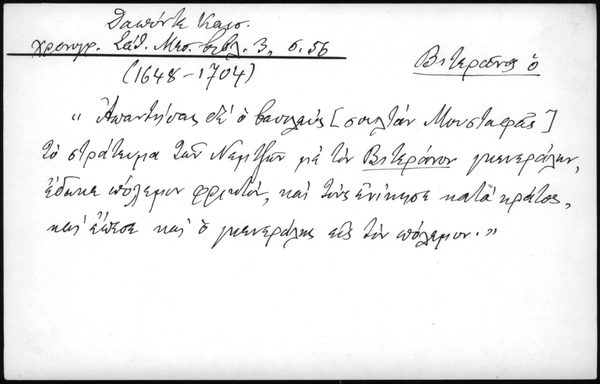 Δαπόντε Καισ.
χρονογρ. Σάθ. Μεσ. βιβλ. 3, σ. 56
(1648-1704)
Βιτεράνος ὁ
“Ἀπαντήσας δὲ ὁ βασιλεὺς [σουλτὰν Μουσταφᾶς]
τὸ στράτευμα τῶν Νεμτζῶν μὲ τὸν Βιτεράνον γκενεράλην,
ἔδωκε πόλεμον φρικτὸν, καὶ τοὺς ἐνίκησε κατὰ κράτος,
καὶ ἔπεσε καὶ ὁ γκενεράλης εἰς τὸν πόλεμον.”